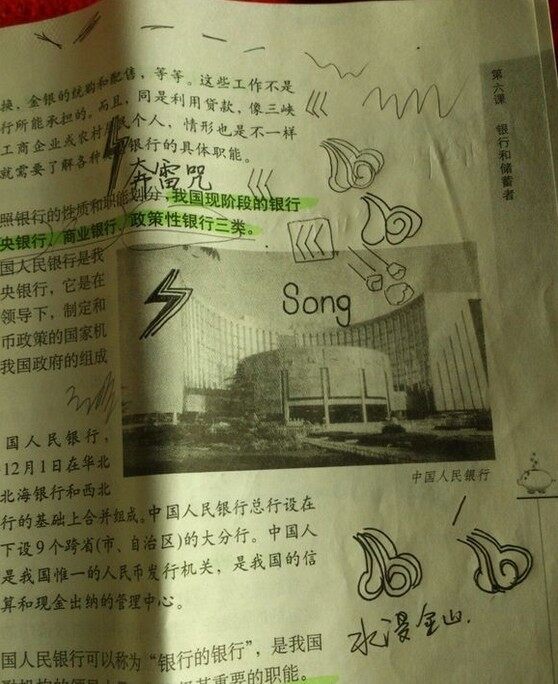 换、金银的统购和配售，等等。这些工作不是
行所能承担的。而且，同是利用贷款，像三峡
工商企业或农村居民个人，情形也是不一样
就需要了解各种银行的具体职能。
奔雷咒
照银行的性质和职能划分，我国现阶段的银行
央银行、商业银行、政策性银行三类。
国人民银行是我
央银行，它是在
领导下，制定和
币政策的国家机
我国政府的组成
Song
中国人民银行
国人民银行，
12月1日在华北
北海银行和西北
行的基础上合并组成。中国人民银行总行设在
下设9个跨省(市、自治区)的大分行。中国人
是我国惟一的人民币发行机关，是我国的信
算和现金出纳的管理中心。
水漫金山.
国人民银行可以称为“银行的银行”，是我国
其重要的职能。
第六课 银行和储蓄者